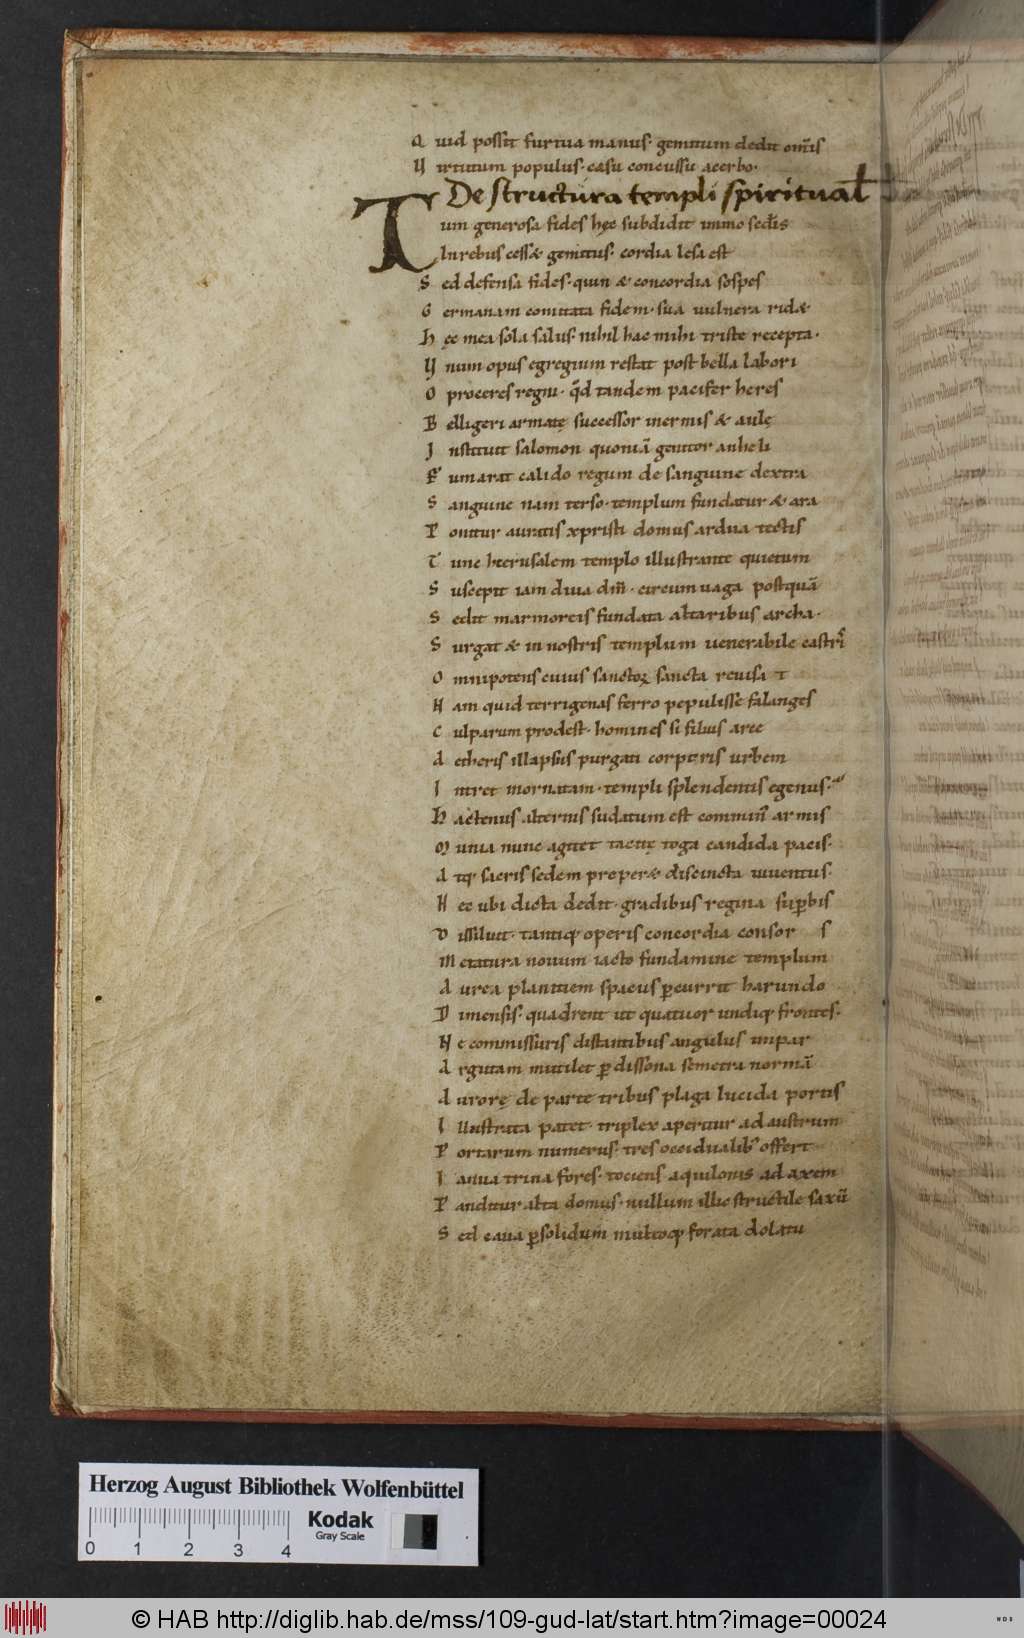 Q uid possit furtiua manus· gemitum dedit om̄is
V irtutum populus· casu concussu acerbo·
De structura templi spiritual
T um generosa fides hęc subdidit immo sed̄is
In rebus cess& gemitus· cordia lesa est
S ed defensa fides· quin & concordia sospes
G ermanam comitata fidem· sua uulnera rid&·
H ęc mea sola salus· nihil hac mihi triste recepta·
V num opus egregium restat post bella labori
O proceres regni· q̄d tandem pacifer heres
B elligeri armatę successor inermis & aulę
I nstituit salomon quoniā genitor anheli
F umarat calido regum de sanguine dextra
S anguine nam terso· templum fundatur & ara
P onitur auratis xpristi domus ardua tectis
T unc hierusalem templo illustrante quietum
S uscepit iam diua dm̄· circumuaga postquā
S edit marmoreis fundata altaribus archa·
S urgat & in nostris templum uenerabile castri
O mnipotens cuius sanctoꝝ sancta reuisa t
N am quid terrigenas ferro pepulisse falanges
C ulparum prodest· hominis si filius arce
A etheris illapsus purgati corporis urbem
I ntret inornatam· templi splendentis egenus·
H actenus alternis sudatum est comminꝰ armis
M unia nunc agitet tacitę toga candida pacis·
A tq; sacris sedem proper& discincta iuuentus·
H ec ubi dicta dedit· gradibus regina suꝑbis
D issiluit· tantiq; operis concordia consor s
M etatura nouum iacto fundamine templum
A urea planitiem spaciis ꝑcurrit harundo
D imensis· quadrent ut quatuor undiq; frontes·
N e commissuris distantibus angulus impar
A rgutam mutilet ꝑ dissona semetra normā
A urorę de parte tribus plaga lucida portis
I llustrata patet· triplex aperitur ad austrum
P ortarum numerus· tres occidualibꝰ offert
I anua trina fores· tociens aquilonis ad axem
P anditur alta domus· nullum illic structile saxū
S ed caua ꝑ solidum multoq; forata dolatu
Herzog August Bibliothek Wolfenbüttel
Kodak
Gray Scale
0 1 2 3 4
© HAB http://diglib.hab.de/mss/109-gud-lat/start.htm?image=00024